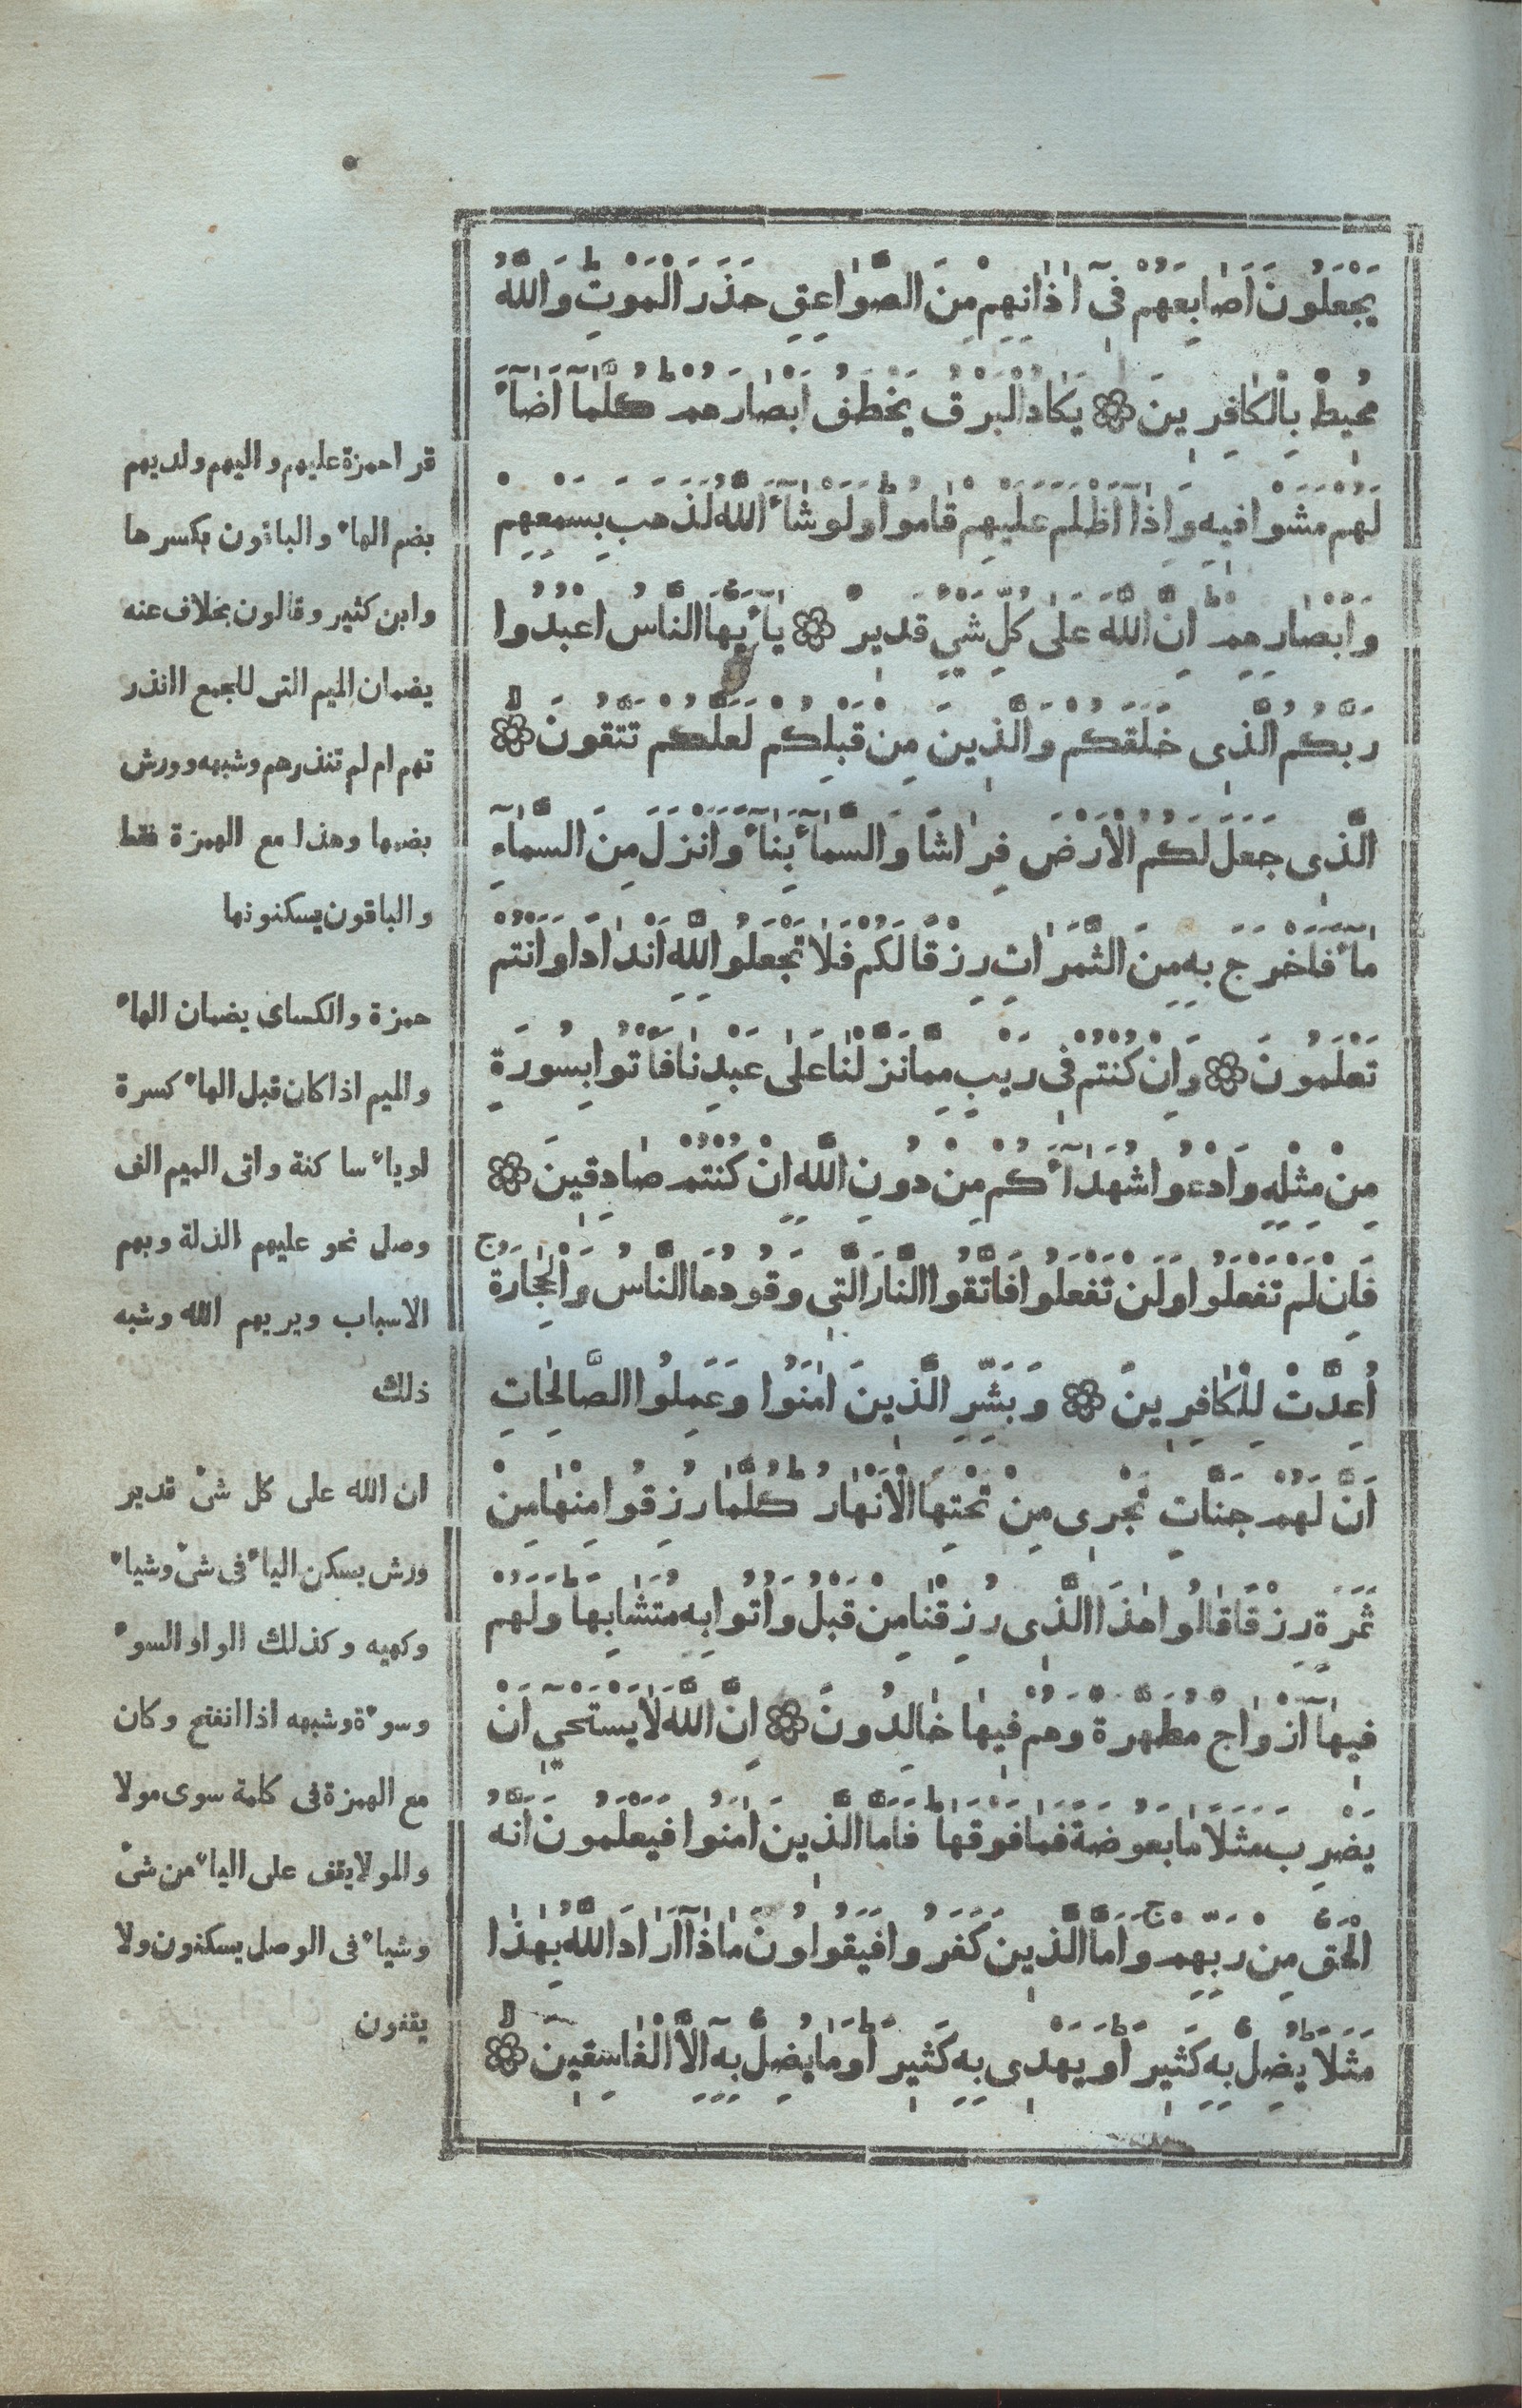 يَجْعَلُونَ اَصَابِعَهُمْ فِىٓ اٰذَانِهِمْ مِنَ الصَّوَاعِقِ حَذَرَ الْمَوْتِ ط وَاللّٰهُ
مُحِيطٌ بِالْكَافِرِينَ ۞ يَكَادُ الْبَرْقُ يَخْطَفُ اَبْصَارَهُمْ ط كُلَّمَآ اَضَآءَ
لَهُمْ مَشَوْا فِيهِ وَاِذَآ اَظْلَمَ عَلَيْهِمْ قَامُوا ط وَلَوْ شَآءَ اللّٰهُ لَذَهَبَ بِسَمْعِهِمْ
وَاَبْصَارِهِمْ ط اِنَّ اللّٰهَ عَلَى كُلِّ شَيْءٍ قَدِيرٌ ۞ يَآ اَيُّهَا النَّاسُ اعْبُدُوا
رَبَّكُمُ الَّذِى خَلَقَكُمْ وَالَّذِينَ مِنْ قَبْلِكُمْ لَعَلَّكُمْ تَتَّقُونَ لا ۞
الَّذِى جَعَلَ لَكُمُ الْاَرْضَ فِرَاشًا وَالسَّمَآءَ بِنَآءً وَاَنْزَلَ مِنَ السَّمَآءِ
مَآءً فَاَخْرَجَ بِهِ مِنَ الثَّمَرَاتِ رِزْقًا لَكُمْ فَلَا تَجْعَلُوا لِلّٰهِ اَنْدَادًا وَاَنْتُمْ
تَعْلَمُونَ ۞ وَاِنْ كُنْتُمْ فِى رَيْبٍ مِمَّا نَزَّلْنَا عَلَى عَبْدِنَا فَاْتُوا بِسُورَةٍ
مِنْ مِثْلِهِ وَادْعُوا شُهَدَآءَكُمْ مِنْ دُونِ اللّٰهِ اِنْ كُنْتُمْ صَادِقِينَ ۞
فَاِنْ لَمْ تَفْعَلُوا وَلَنْ تَفْعَلُوا فَاتَّقُوا النَّارَ الَّتِى وَقُودُهَا النَّاسُ وَالْحِجَارَةُ ج
اُعِدَّتْ لِلْكَافِرِينَ ۞ وَبَشِّرِ الَّذِينَ اٰمَنُوا وَعَمِلُوا الصَّالِحَاتِ
اَنَّ لَهُمْ جَنَّاتٍ تَجْرِى مِنْ تَحْتِهَا الْاَنْهَارُ ط كُلَّمَا رُزِقُوا مِنْهَا مِنْ
ثَمَرَةٍ رِزْقًا قَالُوا هٰذَا الَّذِى رُزِقْنَا مِنْ قَبْلُ وَاُتُوا بِهِ مُتَشَابِهًا ط وَلَهُمْ
فِيهَآ اَزْوَاجٌ مُطَهَّرَةٌ وَهُمْ فِيهَا خَالِدُونَ ۞ اِنَّ اللّٰهَ لَا يَسْتَحْيِٓ اَنْ
يَضْرِبَ مَثَلًا مَا بَعُوضَةً فَمَا فَوْقَهَا ط فَاَمَّا الَّذِينَ اٰمَنُوا فَيَعْلَمُونَ اَنَّهُ
الْحَقُّ مِنْ رَبِّهِمْ ج وَاَمَّا الَّذِينَ كَفَرُوا فَيَقُولُونَ مَاذَآ اَرَادَ اللّٰهُ بِهٰذَا
مَثَلًا ط يُضِلُّ بِهِ كَثِيرًا وَيَهْدِى بِهِ كَثِيرًا ط وَمَا يُضِلُّ بِهِٓ اِلَّا الْفَاسِقِينَ لا ۞
قرا حمزة عليهم و اليهم و لديهم
بضم الهاء والباقون بكسرها
وابن كثير وقالون بخلاف عنه
يضمان الميم التى للجمع اانذر
تهم ام لم تنذرهم وشبهه وورش
بضمها وهذا مع الهمزة فقط
والباقون يسكنونها
حمزة والكساى يضمان الهاء
والميم اذا كان قبل الهاء كسرة
اوياء ساكنة واتى الميم الف
وصل نحو عليهم الذلة وبهم
الاسباب ويريهم الله وشبه
ذلك
ان الله على كل شىء قدير
ورش يسكن الياء فى شىء وشياء
وكهيه وكذلك الواو السوء
وسوءة وشبهه اذا انفتح وكان
مع الهمزة فى كلمة سوى مولا
والمولا يقف على الياء من شىء
وشياء فى الوصل يسكنون ولا
يقفون